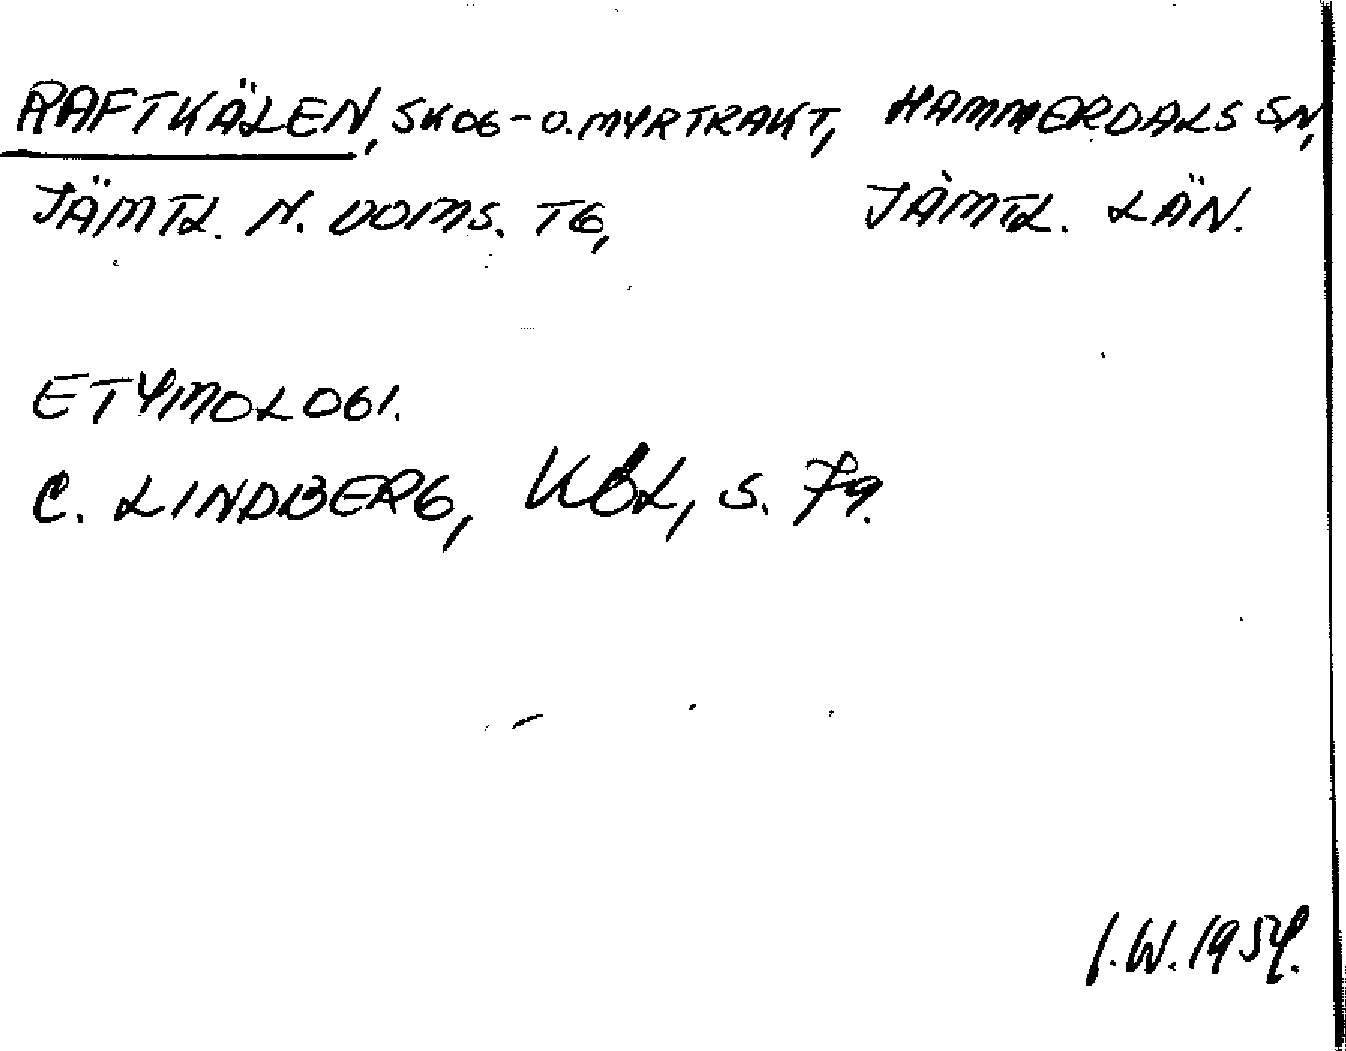 RAFTKÄLEN, SKOG- O. MYRTRAKT, HAMMERDALS SN,
JÄMTL. N. DOMS. TG, JÄMTL. LÄN.
ETYMOLOGI.
C. LINDBERG, KBL, S. 79.
I.W. 1954.